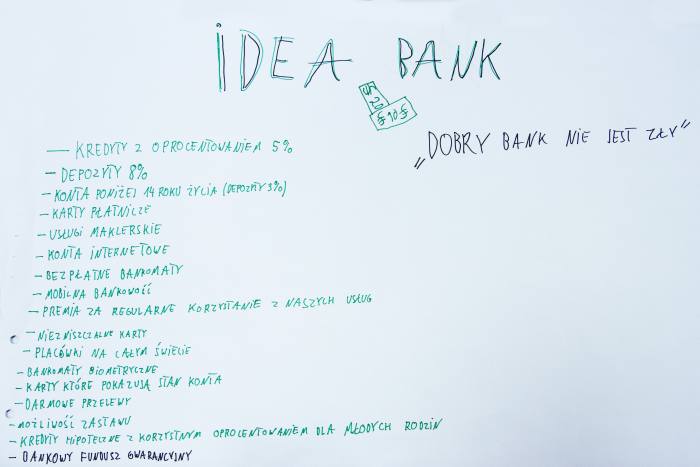 IDEA BANK
20
$10$
„DOBRY BANK NIE JEST ZŁY”
— KREDYTY Z OPROCENTOWANIEM 5%
- DEPOZYTY 8%
- KONTA PONIŻEJ 14 ROKU ŻYCIA (DEPOZYTY 3%)
- KARTY PŁATNICZE
- USŁUGI MAKLERSKIE
- KONTA INTERNETOWE
- BEZPŁATNE BANKOMATY
- MOBILNA BANKOWOŚĆ
- PREMIA ZA REGULARNE KORZYSTANIE Z NASZYCH USŁUG
- NIEZNISZCZALNE KARTY
- PLACÓWKI NA CAŁYM ŚWIECIE
- BANKOMATY BIOMETRYCZNE
- KARTY KTÓRE POKAZUJĄ STAN KONTA
- DARMOWE PRZELEWY
- MOŻLIWOŚĆ ZASTAWU
- KREDYTY HIPOTECZNE Z KORZYSTNYM OPROCENTOWANIEM DLA MŁODYCH RODZIN
- BANKOWY FUNDUSZ GWARANCYJNY